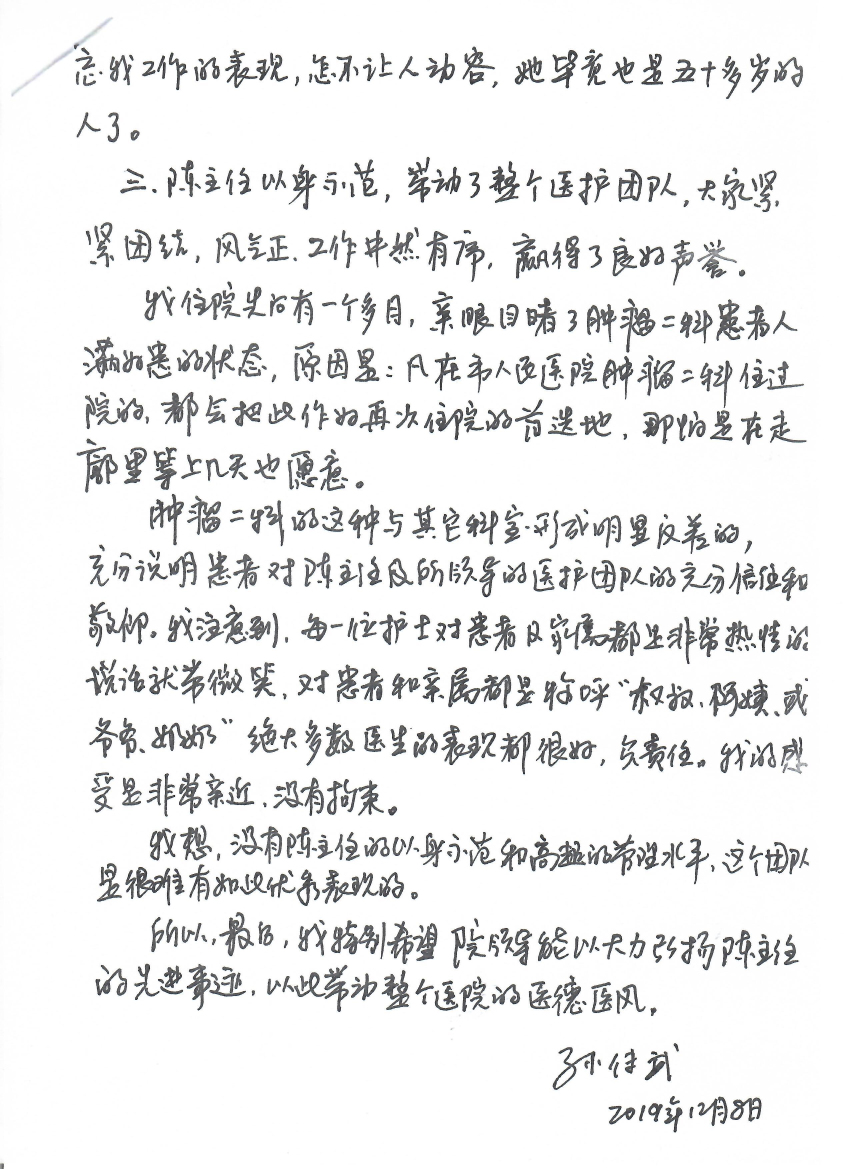 忘我工作的表现，怎不让人动容，她毕竟也是五十多岁的
人了。
三、陈主任以身示范，带动了整个医护团队，大家紧
紧团结，风气正、工作井然有序，赢得了良好声誉。
我住院先后有一个多月，亲眼目睹了肿瘤二科患者人
满如患的状态，原因是：凡在市人民医院肿瘤二科住过
院的，都会把此作为再次住院的首选地，那怕是在走
廊里等上几天也愿意。
肿瘤二科的这种与其它科室形成明显反差的，
充分说明患者对陈主任及所领导的医护团队的充分信任和
敬仰。我注意到，每一位护士对患者及家属都是非常热情的
说话就带微笑，对患者和亲属都是称呼“叔叔、阿姨、或
爷爷、奶奶”绝大多数医生的表现都很好，负责任。我的感
受是非常亲近，没有拘束。
我想，没有陈主任的以身示范和高超的管理水平，这个团队
是很难有如此优秀表现的。
所以，最后，我特别希望院领导能以大力弘扬陈主任
的先进事迹，以此带动整个医院的医德医风。
孙佳武
2019年12月8日